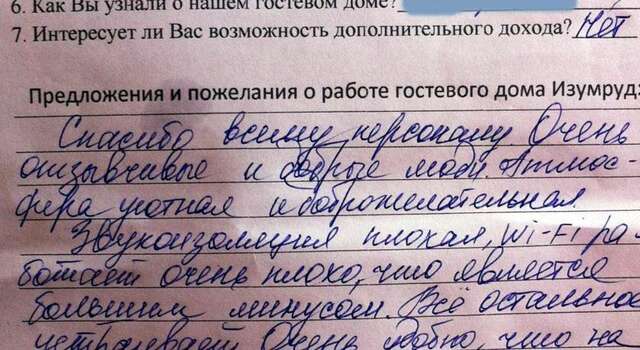 6. Как Вы узнали о нашем гостевом доме?
7. Интересует ли Вас возможность дополнительного дохода? Нет
Предложения и пожелания о работе гостевого дома Изумруд:
Спасибо всему персоналу. Очень
отзывчивые и добрые люди. Атмос-
фера уютная и доброжелательная
Звукоизоляция плохая, Wi-Fi ра-
ботает очень плохо, что является
большим минусом. Всё остальное
устраивает Очень удобно, что на